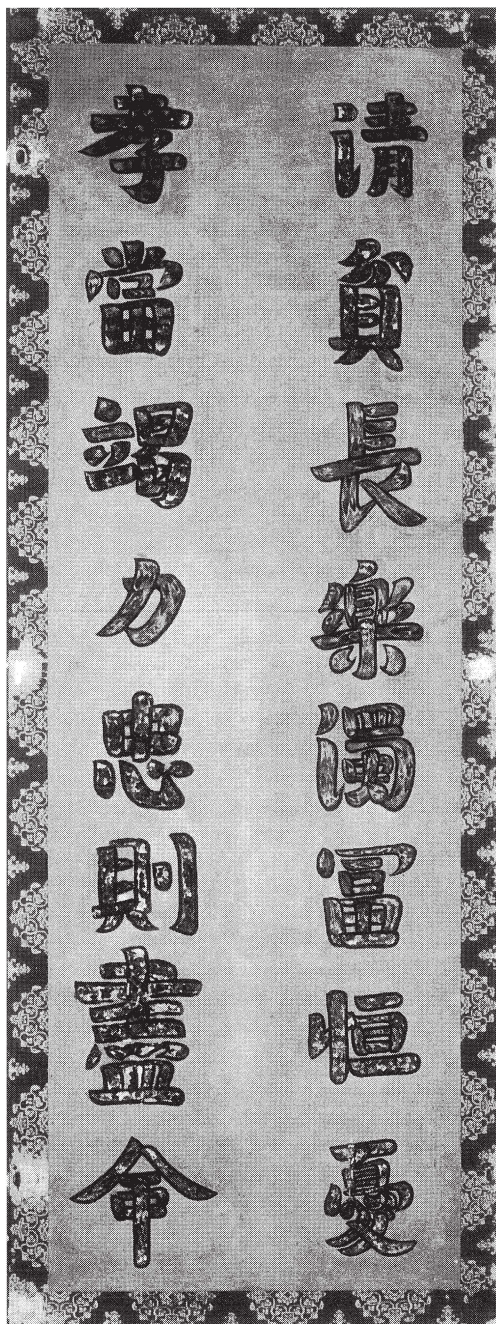 清貧長樂濁冨恒憂
孝當竭力忠則盡命